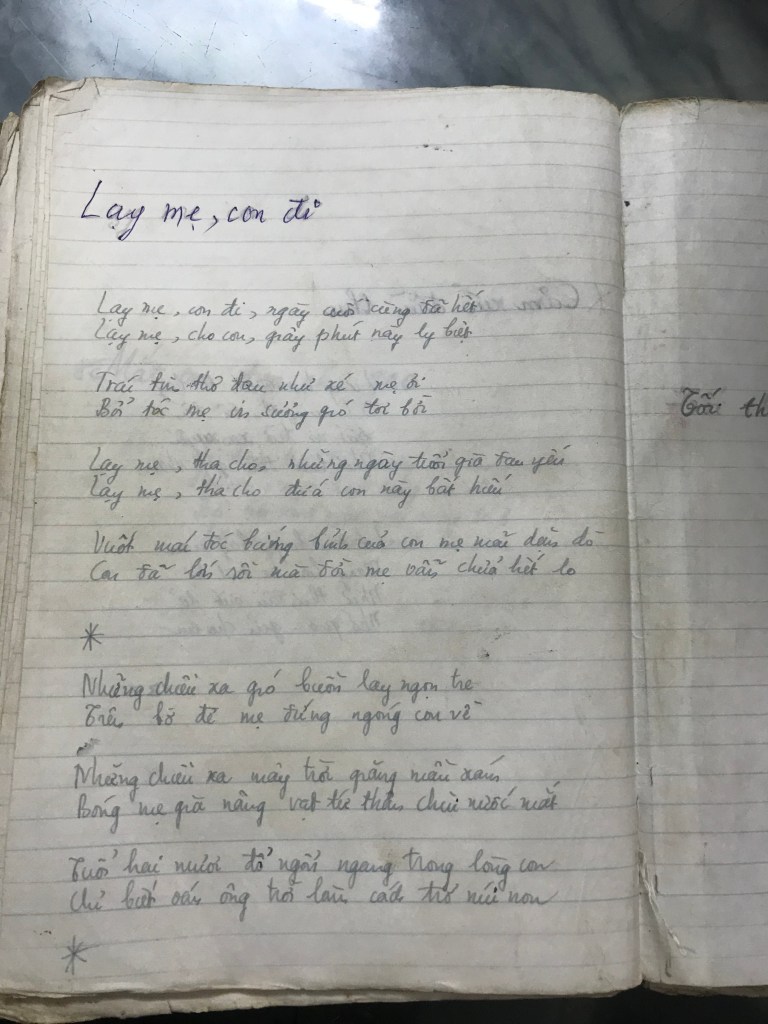 Lạy mẹ, con đi
Lạy mẹ, con đi, ngày cuối cùng đã hết
Lạy mẹ, cho con, giây phút này ly biệt
Trái tim thơ đau như xé mẹ ơi
Bởi tóc mẹ in sương gió tơi bời
Lạy mẹ, tha cho, những ngày tuổi già đau yếu
Lạy mẹ, tha cho đứa con này bất hiếu
Vuốt mái tóc bướng bỉnh của con mẹ mãi dặn dò
Con đã lớn rồi mà đời mẹ vẫn chưa hết lo
*
Những chiều xa gió buồn lay ngọn tre
Trên bờ đê mẹ đứng ngóng con về
Những chiều xa mây trời giăng màu xám
Bóng mẹ già nâng vạt tứ thân chùi nước mắt
Tuổi hai mươi đổ ngổn ngang trong lòng con
Chỉ biết oán ông trời làm cách trở núi non
*
Tôi th